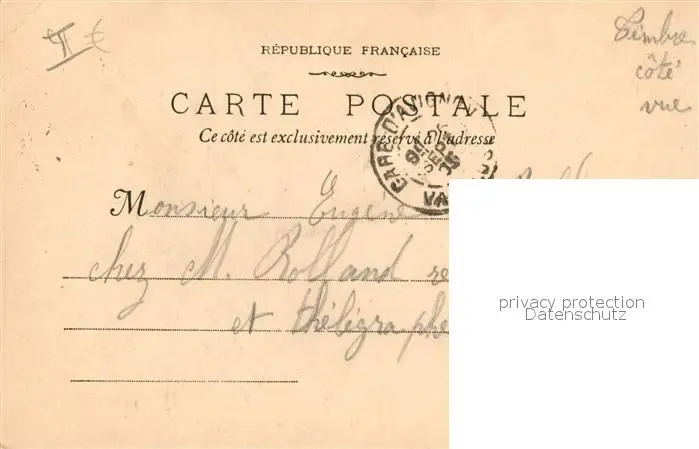 Timbre
côté
vue
RÉPUBLIQUE FRANÇAISE
CARTE POSTALE
Ce côté est exclusivement réservé à l'adresse
GARE D'AVIGNON
VA
Monsieur Eugène
chez M. Rolland re
et théligraphe
privacy protection
Datenschutz